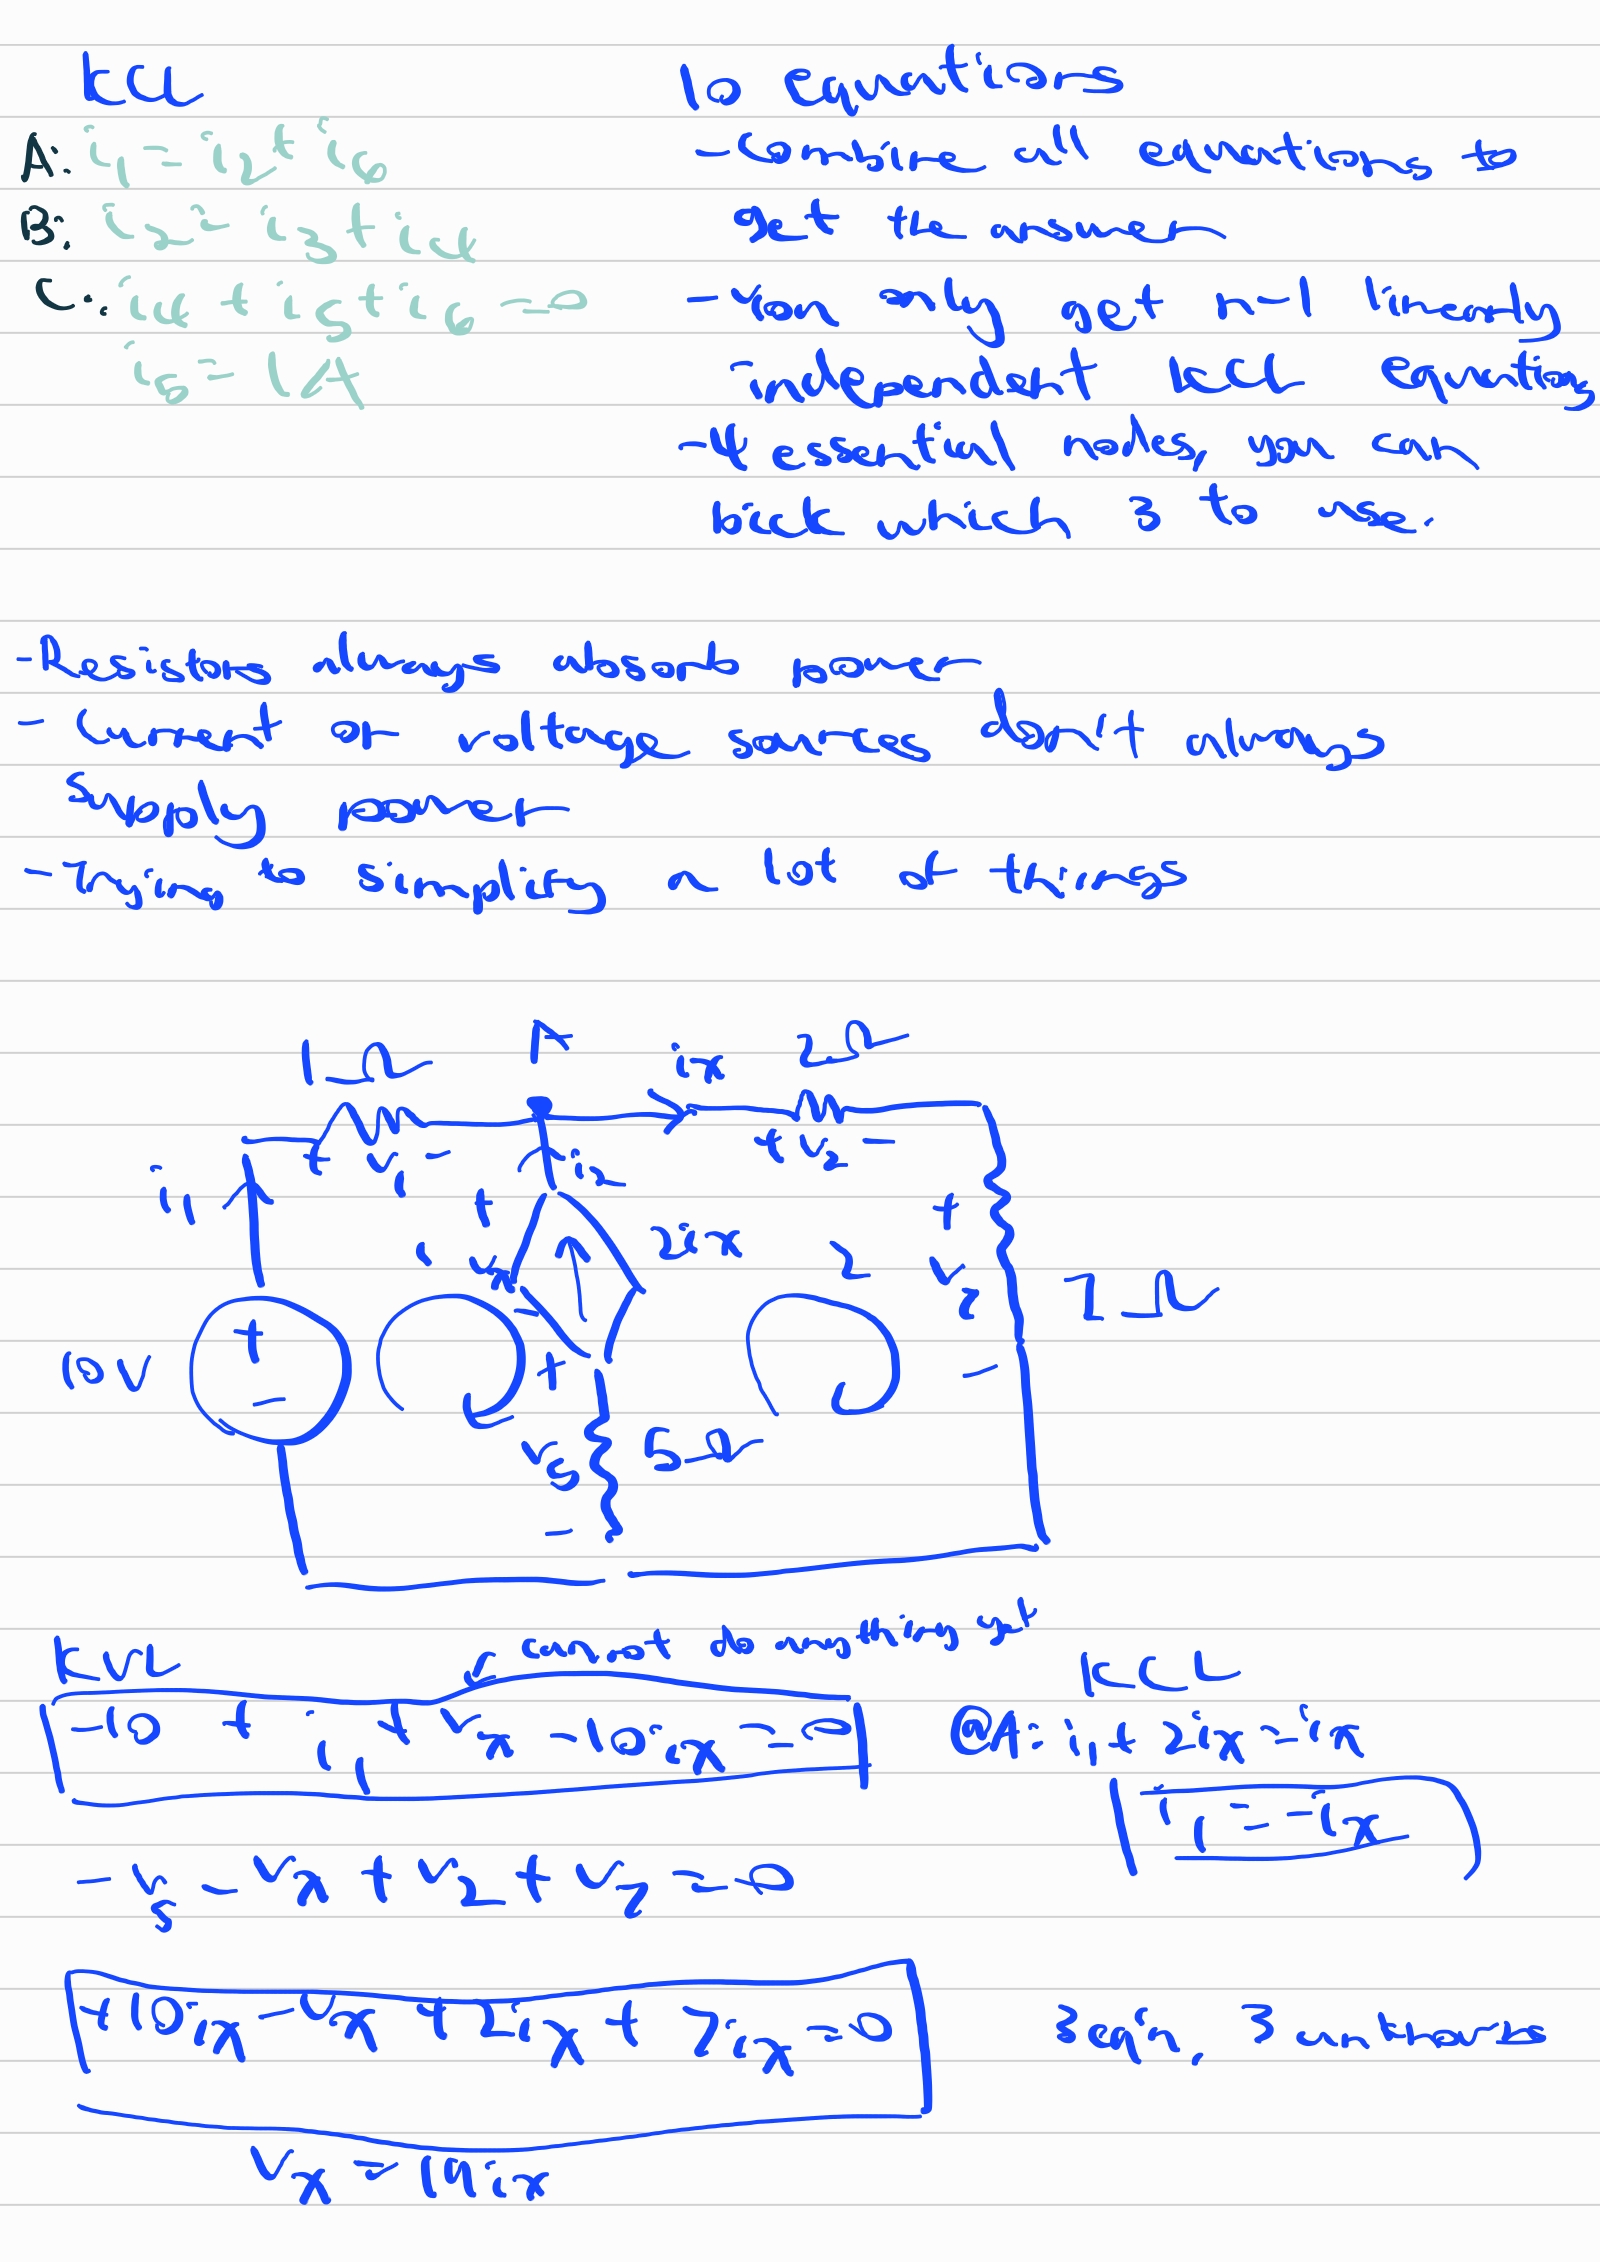 KCL
A: i1 = i2 + i6
B: i2 = i3 + i4
C: i4 + i5 + i6 = 0
i5 = 1A
10 equations
- Combine all equations to
get the answer
- You only get n-1 linearly
independent KCL equations
- 4 essential nodes, you can
pick which 3 to use.
- Resistors always absorb power
- Current or voltage sources don't always
supply power
- Trying to simplify a lot of things
1Ω A ix 2Ω
+ v1 - + v2 -
i1 i2
+ vx - 2ix + v7 - 7Ω
1 2
10V + -
+ v5 - 5Ω
KVL cannot do anything yet
-10 + i1 + vx - 10ix = 0
- v5 - vx + v2 + v7 = 0
+10ix - vx + 2ix + 7ix = 0
vx = 19ix
KCL
@A: i1 + 2ix = ix
i1 = -ix
3 eq'n, 3 unknowns